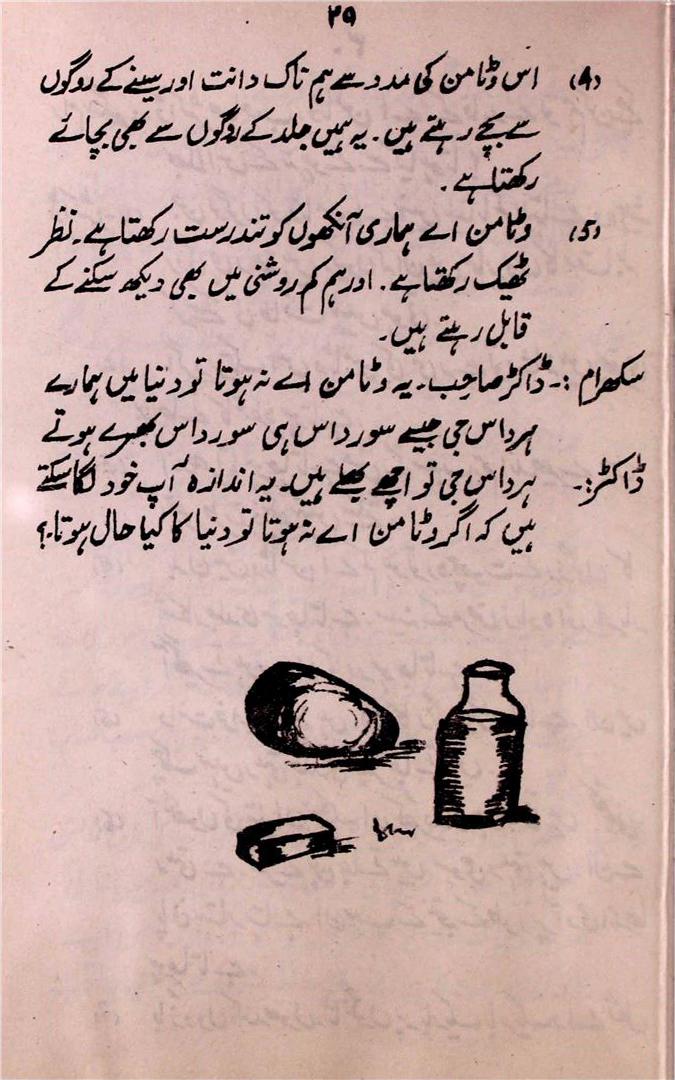 ۲۹
(4) اس وٹامن کی مدد سے ہم ناک دانت اور سینے کے روگوں
سے بچے رہتے ہیں۔ یہ ہمیں جلد کے روگوں سے بھی بچائے
رکھتا ہے۔
(5) وٹامن اے ہماری آنکھوں کو تندرست رکھتا ہے۔ نظر
ٹھیک رکھتا ہے۔ اور ہم کم روشنی میں بھی دیکھ سکنے کے
قابل رہتے ہیں۔
سکھرام :۔ ڈاکٹر صاحب۔ یہ وٹامن اے نہ ہوتا تو دنیا میں ہمارے
ہرداس جی جیسے سورداس ہی سورداس بھرے ہوتے
ڈاکٹر:۔ ہرداس جی تو اچھے بھلے ہیں۔ یہ اندازہ آپ خود لگا سکتے
ہیں کہ اگر وٹامن اے نہ ہوتا تو دنیا کا کیا حال ہوتا۔؟